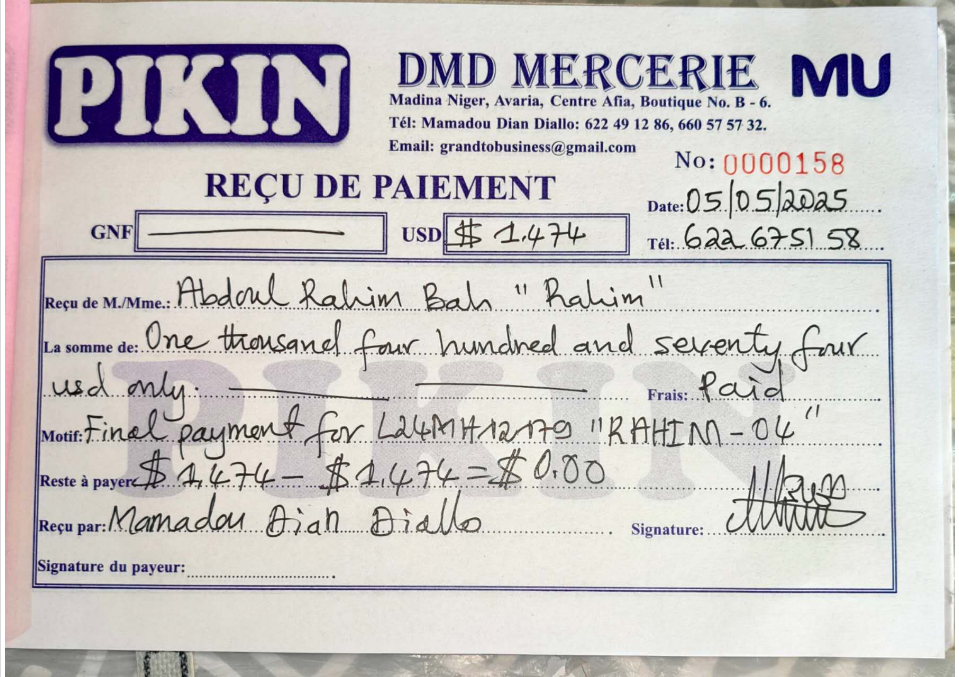 PIKIN
DMD MERCERIE
MU
Madina Niger, Avaria, Centre Afia, Boutique No. B - 6.
Tél: Mamadou Dian Diallo: 622 49 12 86, 660 57 57 32.
Email: grandtobusiness@gmail.com
No: 0000158
REÇU DE PAIEMENT
Date: 05/05/2025
GNF
USD $ 1.474
Tél: 622 6751 58
Reçu de M./Mme.: Abdoul Rahim Bah "Rahim"
La somme de: One thousand four hundred and seventy four
usd only.
Frais: Paid
Motif: Final payment for L24MH12179 "RAHIM-04"
Reste à payer $ 1.474 - $ 1.474 = $ 0.00
Reçu par: Mamadou Dian Diallo
Signature:
Signature du payeur:
PIKIN